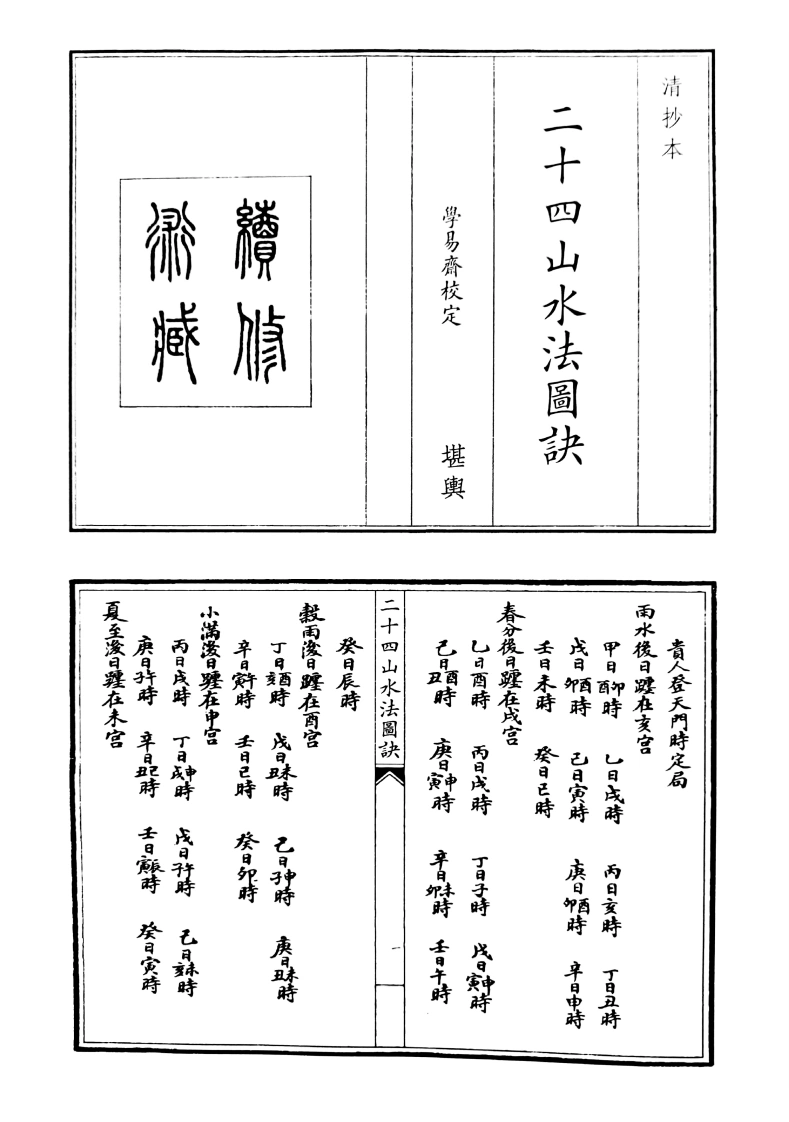 清抄本
二十四山水法圖訣
學易齋校定 堪輿
續修
術藏
貴人登天門時定局
雨水後日躔在亥宮
甲日酉卯時 乙日戌時 丙日亥時 丁日丑時
戊日卯酉時 己日寅時 庚日卯酉時 辛日申時
壬日未時 癸日巳時
春分後日躔在戌宮
乙日酉時 丙日戌時 丁日子時 戊日寅申時
己日丑酉時 庚日寅申時 辛日卯未時 壬日午時
二十四山水法圖訣
一
癸日辰時
穀雨後日躔在酉宮
丁日亥酉時 戊日丑未時 己日子申時 庚日丑未時
辛日寅午時 壬日巳時 癸日卯時
小滿後日躔在申宮
丙日戌時 丁日戌申時 戊日子午時 己日亥未時
庚日子午時 辛日丑巳時 壬日寅辰時 癸日寅時
夏至後日躔在未宮